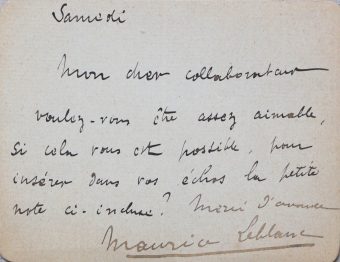 Samedi
Mon cher collaborateur
voulez-vous être assez aimable,
si cela vous est possible, pour
insérer dans vos échos la petite
note ci-incluse ? Merci d'avance
Maurice Leblanc